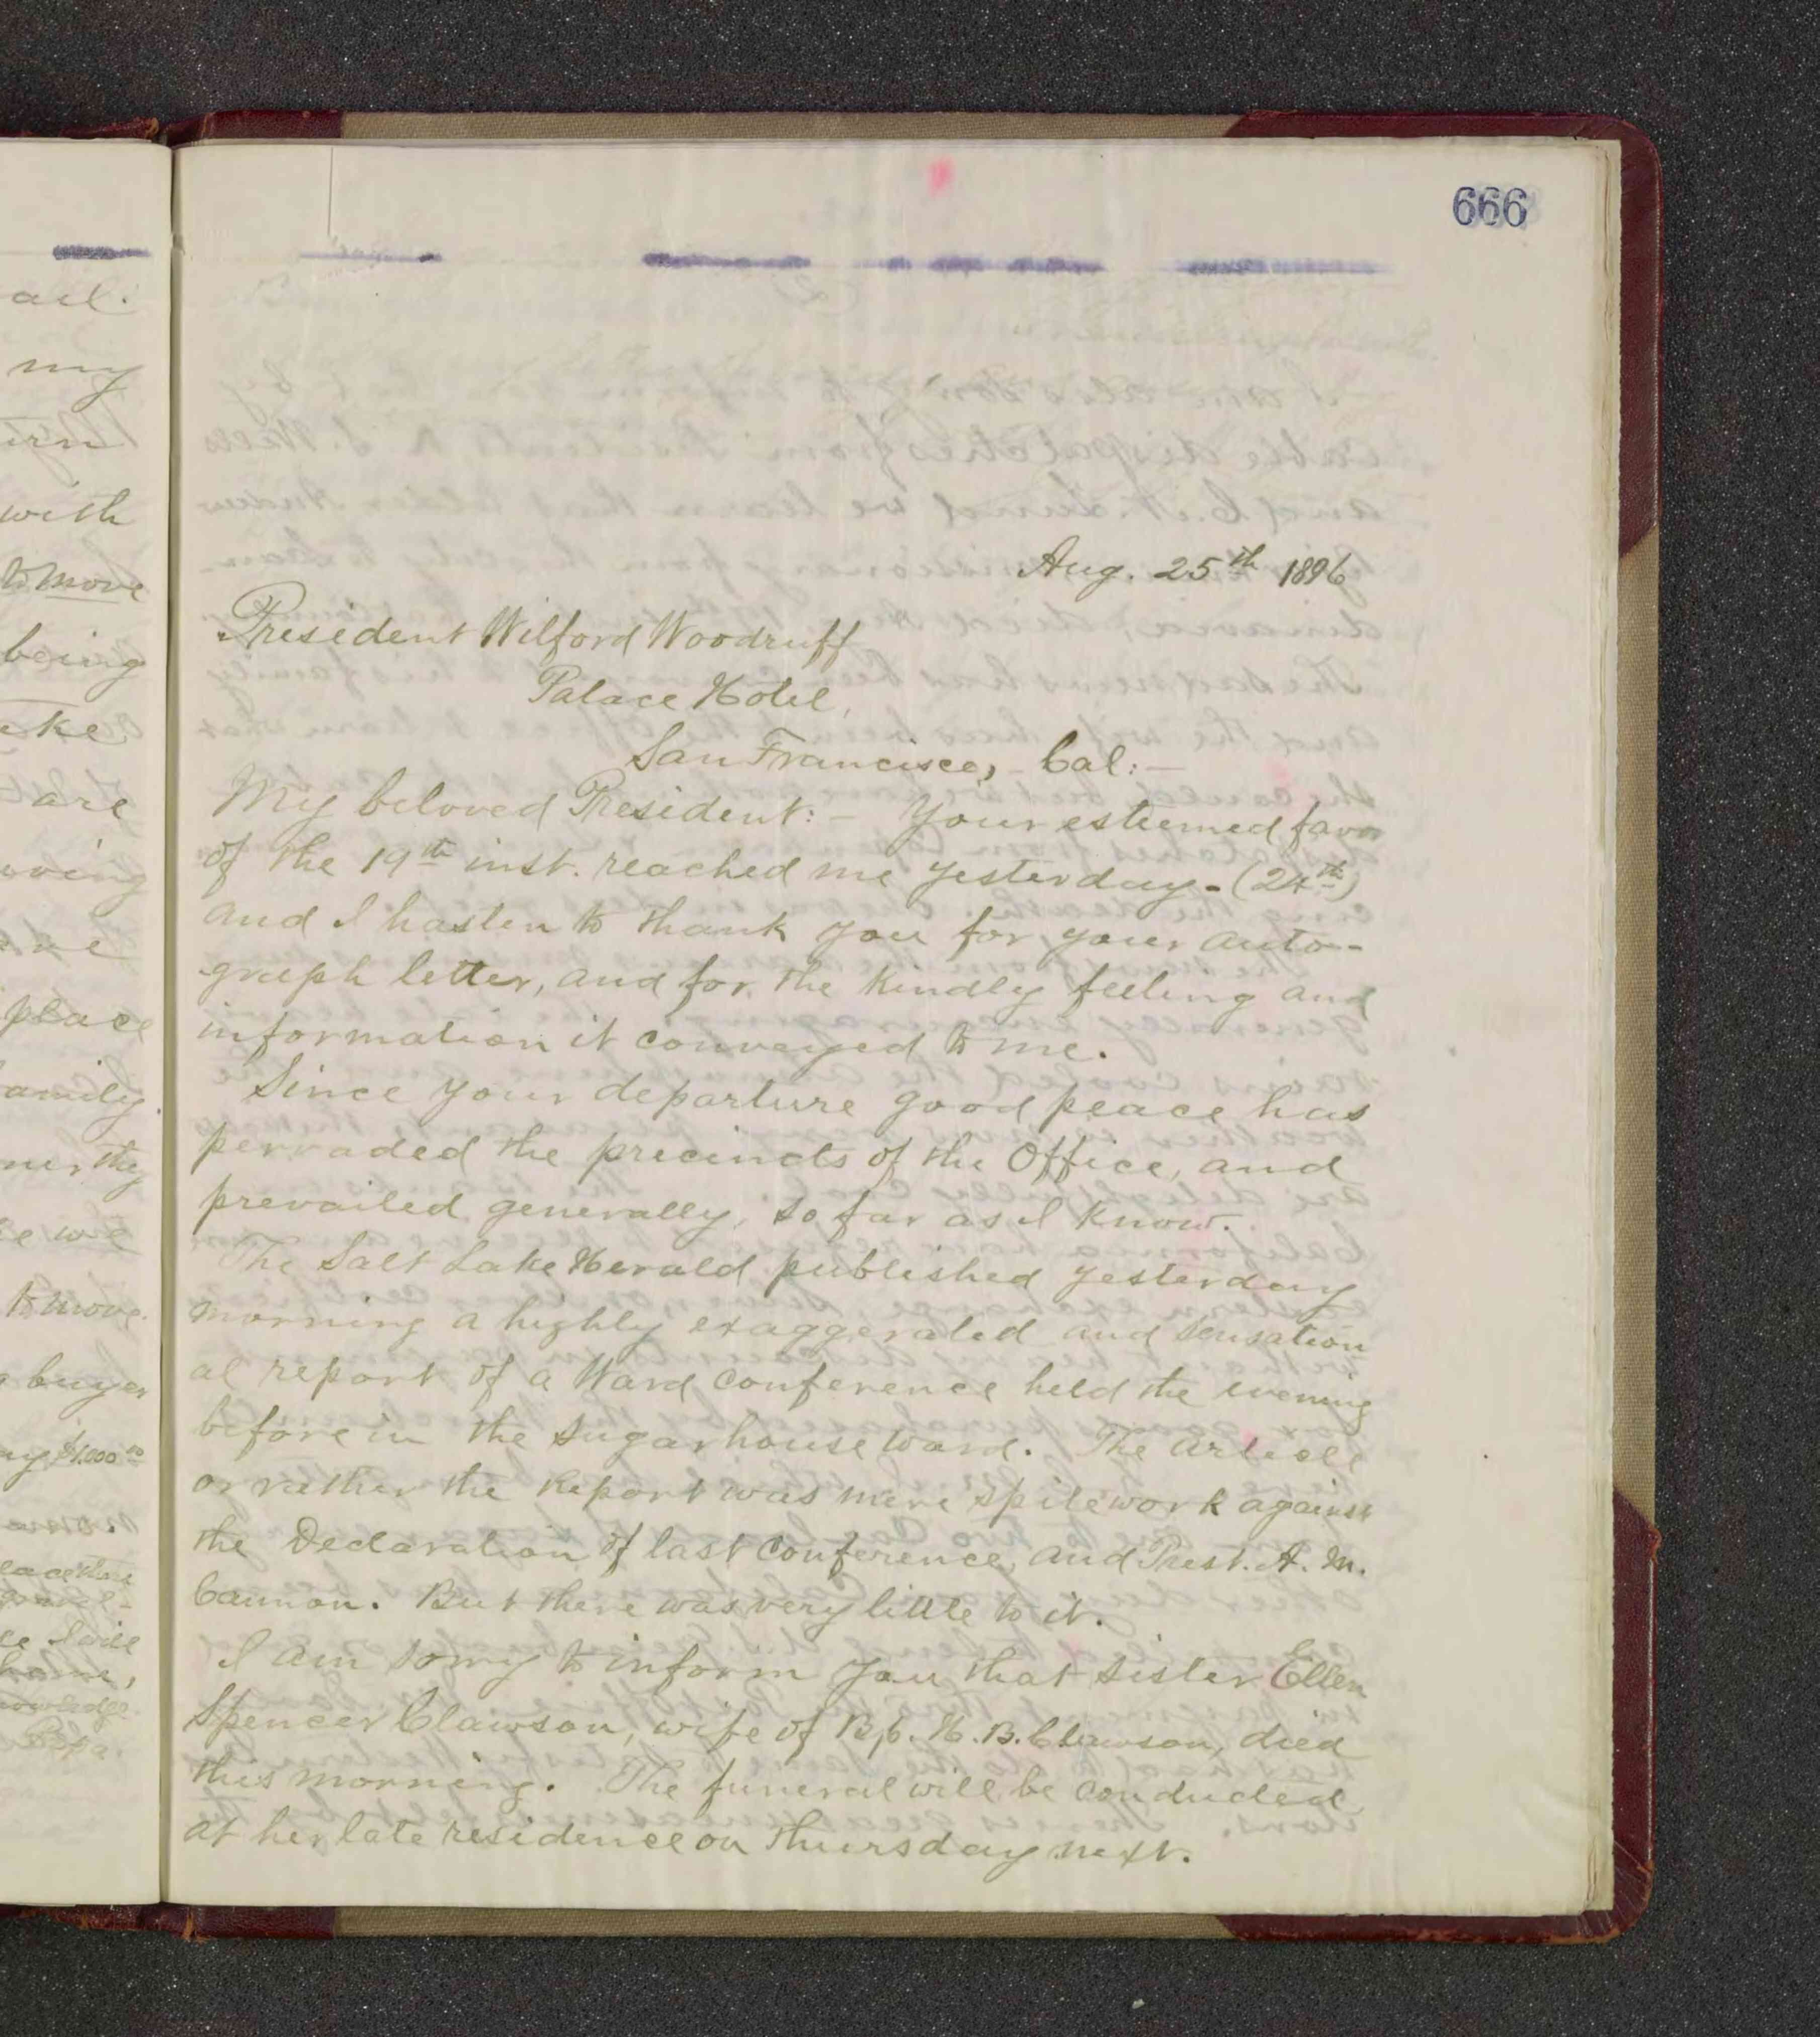 ail.
my
with
to move
being
are
place
family.
to move.
666
Aug. 25th 1896
President Wilford Woodruff
Palace Hotel,
San Francisco, Cal:—
My beloved President:— Your esteemed favor
of the 19th inst. reached me yesterday - (24th)
and I hasten to thank you for your auto-
graph letter, and for the kindly feeling and
information it conveyed to me.
Since your departure good peace has
pervaded the precincts of the Office, and
prevailed generally, so far as I know.
The Salt Lake Herald published yesterday
morning a highly exaggerated and sensation
al report of a Ward conference held the evening
before in the Sugarhouse Ward. The Article
or rather the Report was mere spitework against
the Declaration of last Conference, and Prest. A. M.
Cannon. But there was very little to it.
I am sorry to inform you that sister Ellen
Spencer Clawson, wife of Bp. H. B. Clawson, died
this morning. The funeral will be conducted
at her late residence on Thursday next.